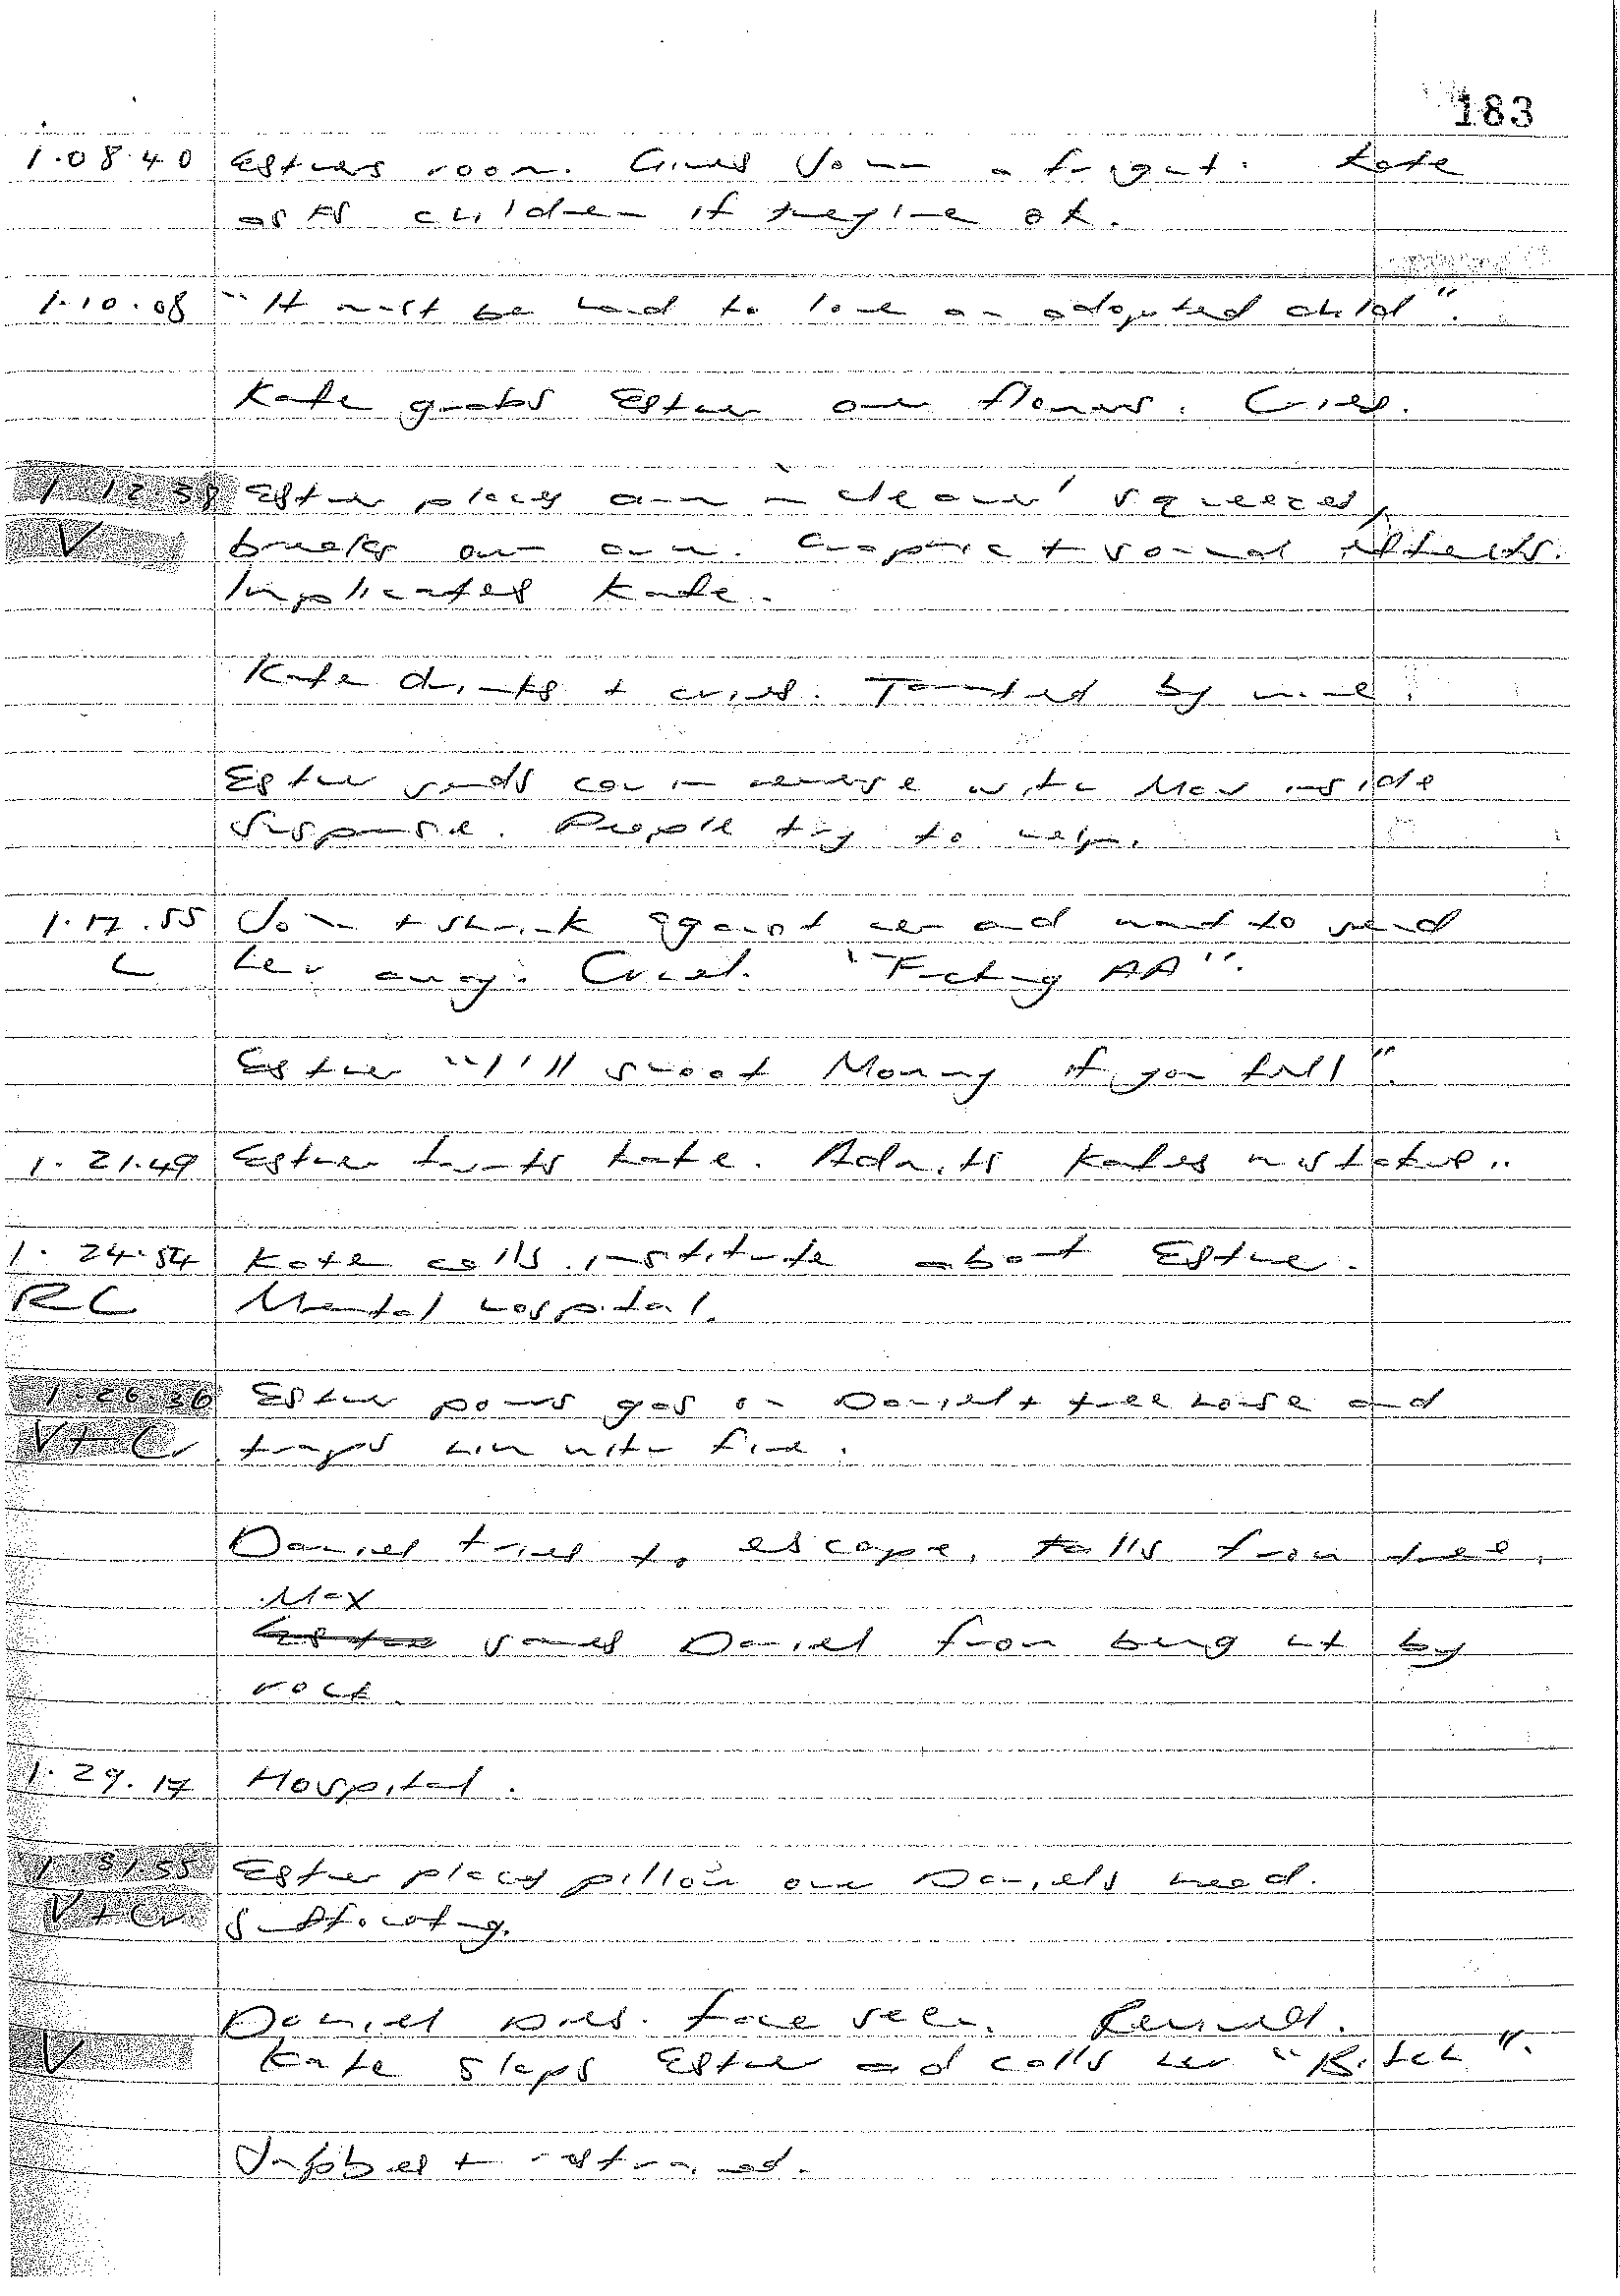 183
1.08.40 Esthers room. Gives John a fright. Kate
asks children if they're ok.
1.10.08 "It must be hard to love an adopted child".
Kate grabs Esther over flowers. Cries.
1.12.58 Esther places arm in squeezes,
V breaks own arm. Graphic + sound effects.
Implicates Kate.
Kate drinks + cries. Taunted by wine.
Esther sends car in reverse with Max inside
Suspense. People try to help.
1.17.55 John + shrink against her and want to send
L her away. Cruel. "Fucking AA".
Esther "I'll shoot Mommy if you tell".
1.21.49 Esther taunts Kate. Admits Kates mistakes..
1.24.54 Kate calls institute about Esther.
RC Mental hospital.
1.26.36 Esther pours gas on Daniel + treehouse and
V + Cr traps him with fire.
Daniel tries to escape, falls from tree.
Max
Esther saves Daniel from being hit by
rock.
1.29.17 Hospital.
1.31.55 Esther places pillow over Daniels head.
V + Cr Suffocating.
Daniel dies. Face seen. Revived.
V Kate slaps Esther and calls her "Bitch".
+ restrained.